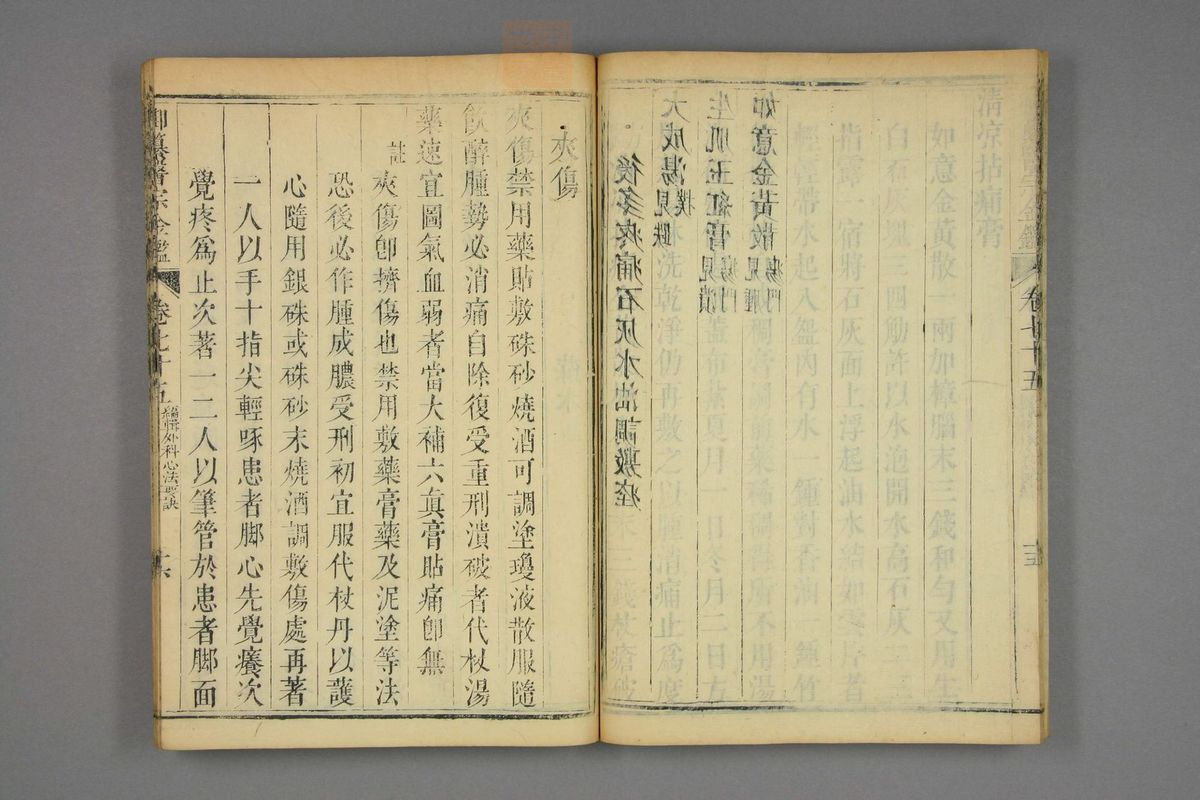 金鑑 卷七十五 十五
清凉拈痛膏
如意金黃散一兩加樟腦末三錢和勻又用生
白石灰塊三四觔許以水泡開水高石灰二三
指露一宿將石灰面上浮起油水結如雲片者
輕輕帶水起入盌內有水一鍾對香油一鍾竹
稠膏調前藥稀稠得所不用湯
蓋布蒸夏月一日冬月二日方
淋洗乾淨仍再敷之以腫消痛止爲度
三錢杖瘡破
如意金黃散見腫瘍門
生肌玉紅膏見潰瘍門
大成湯見撲跌
後多疼痛石灰水油調敷痊
夾傷
夾傷禁用藥貼敷硃砂燒酒可調塗瓊液散服隨
飲醉腫勢必消痛自除復受重刑潰破者代杖湯
藥速宜圖氣血弱者當大補六真膏貼痛卽無
註夾傷卽擠傷也禁用敷藥膏藥及泥塗等法
恐後必作腫成膿受刑初宜服代杖丹以護
心隨用銀硃或硃砂末燒酒調敷傷處再著
一人以手十指尖輕啄患者脚心先覺癢次
覺疼爲止次著一二人以筆管於患者脚面
御纂醫宗金鑑 卷七十五 編輯外科心法要訣 十六